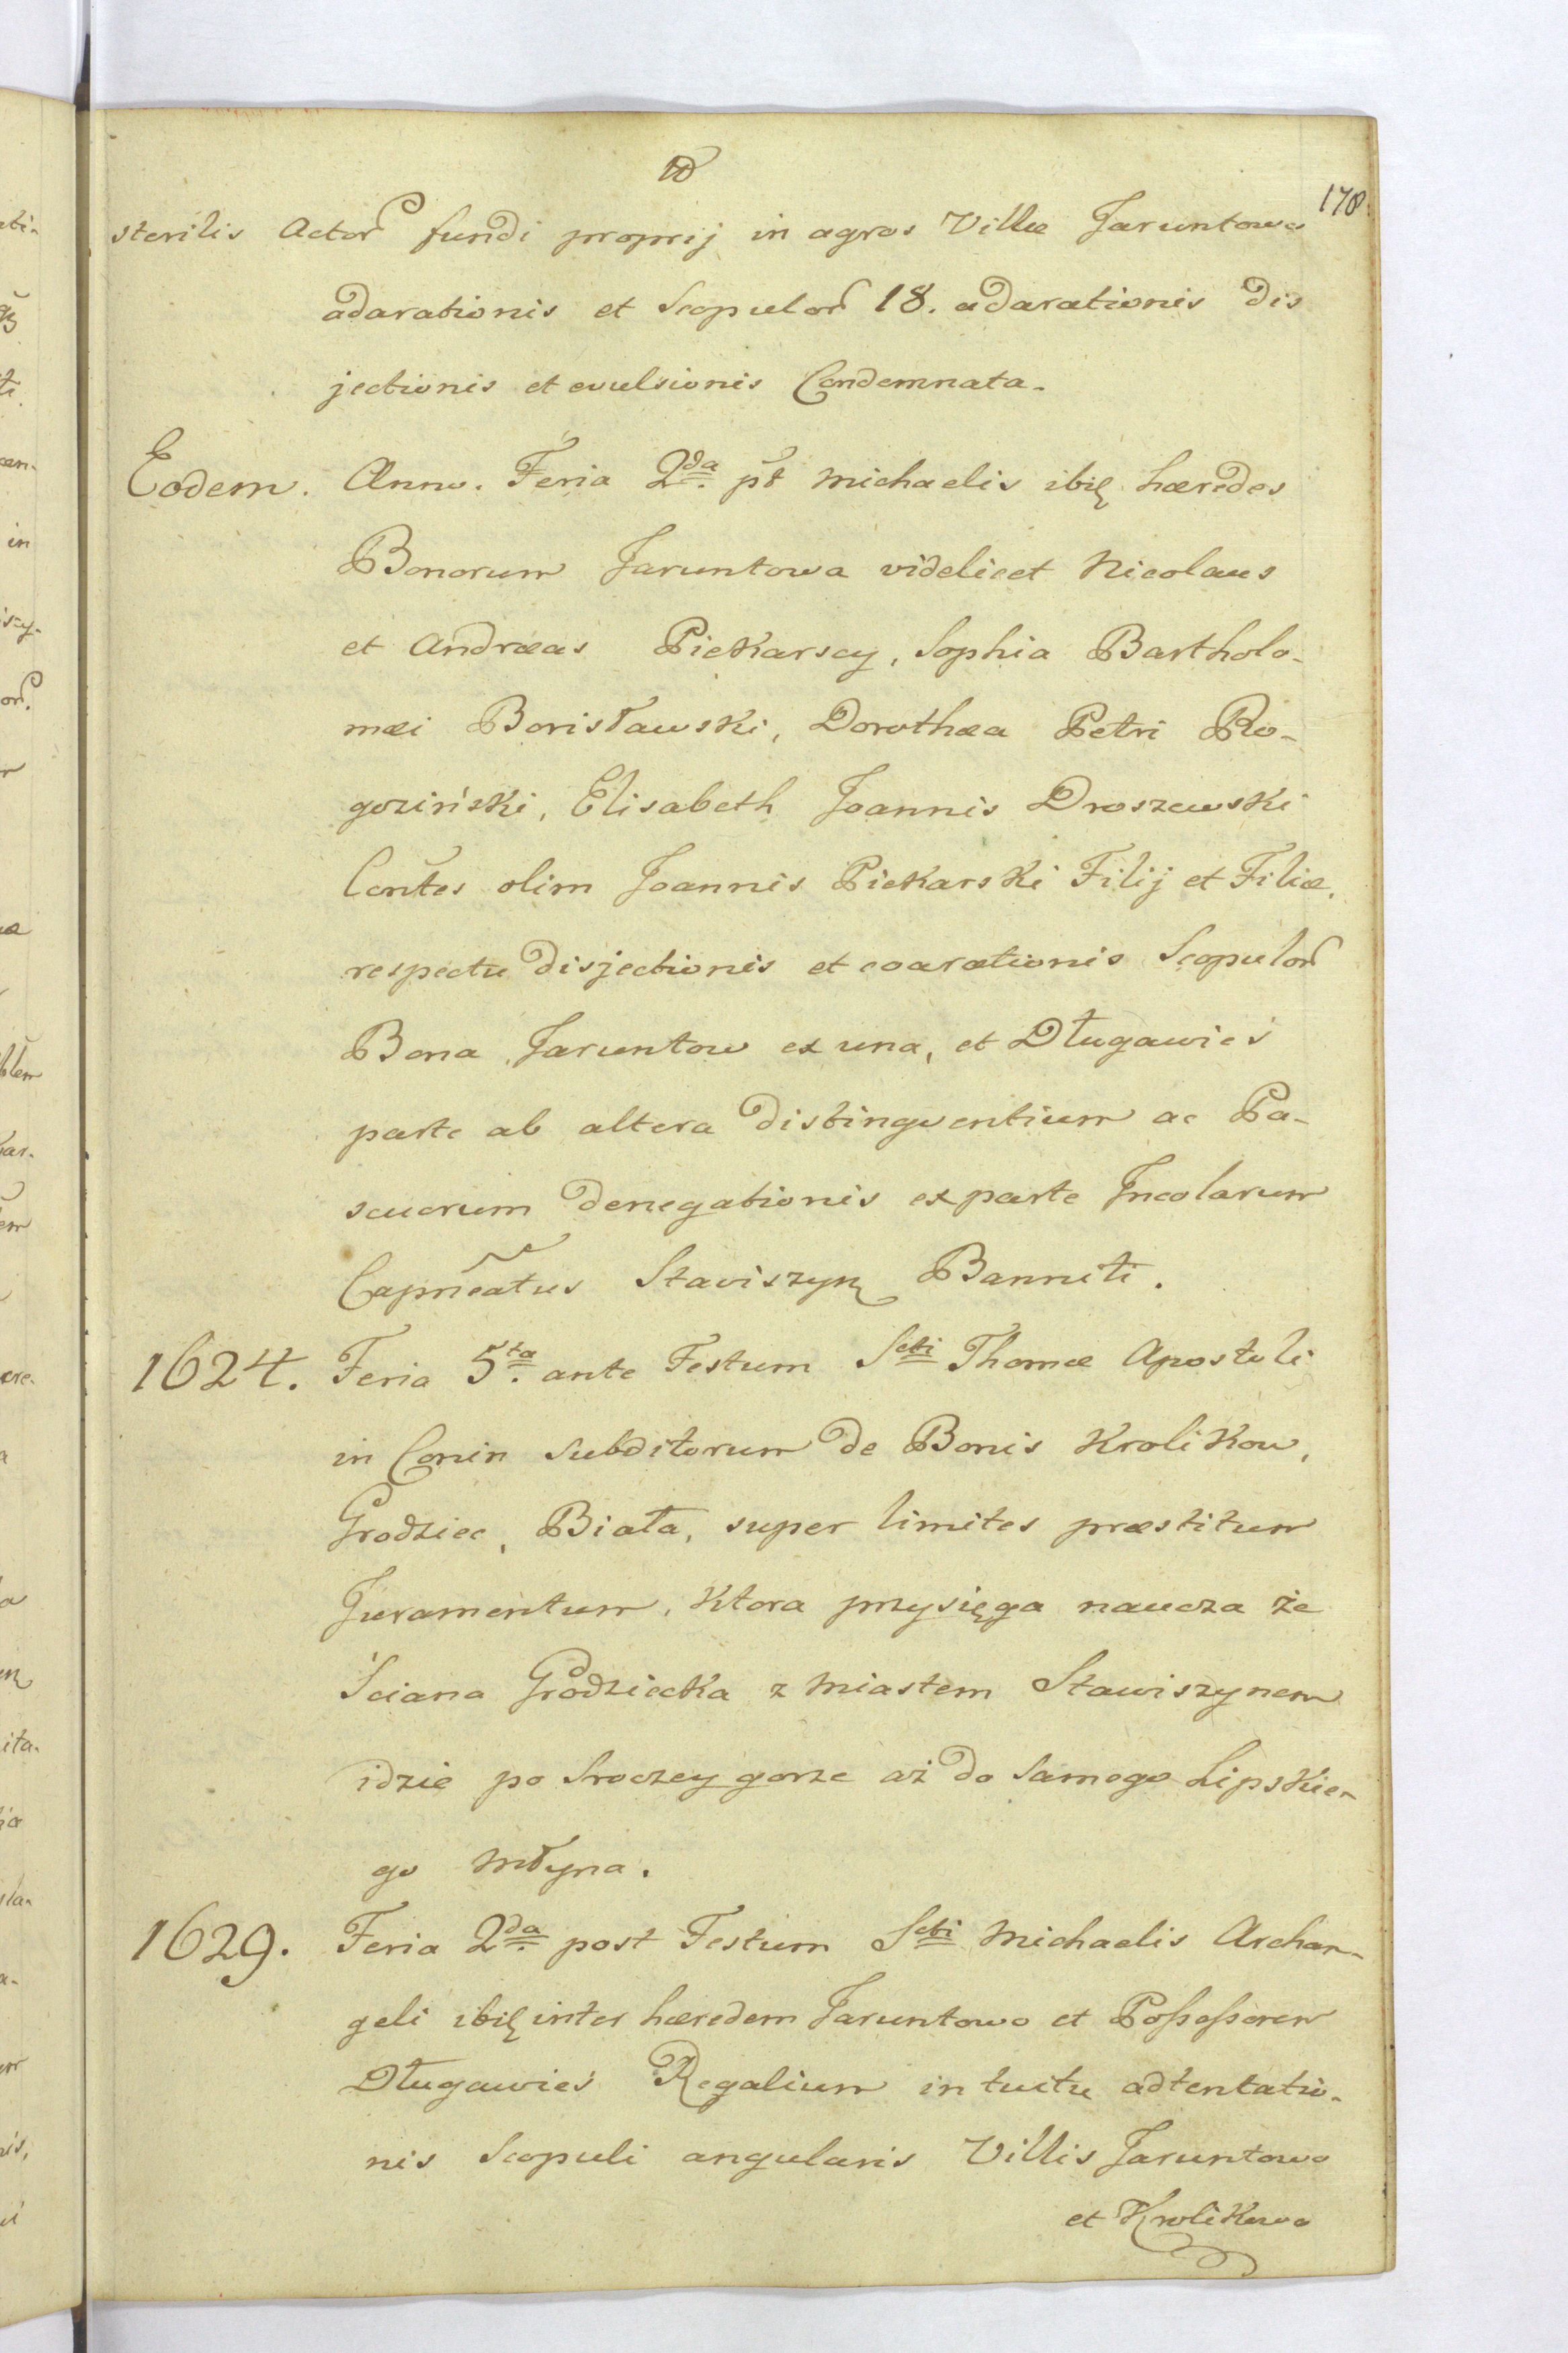 178
sterilis Actor fundi proprij in agros Villæ Jaruntowo
adarationis et Scopulor 18. adarationis dis
jectionis et evulsionis Condemnata.
Eodem. Anno. Feria 2da. pt Michaelis ibid hæredes
Bonorum Jaruntowa videlicet Nicolaus
et Andræas Piekarscy, Sophia Bartholo-
mæi Borisławski, Dorothæa Petri Ro-
goziński, Elisabeth Joannis Droszewski
Contes olim Joannis Piekarski Filij et Filiæ,
respectu disjectionis et coarationis Scopulor
Bona Jaruntow ex una, et Długawieś
parte ab altera distingventium ac Pa-
scuorum denegationis ex parte Incolarum
Capneatus Staviszyn Banniti.
1624. Feria 5ta. ante Festum Scti Thomæ Apostoli
in Conin Subditorum de Bonis Krolikow,
Grodziec, Biała, super limites præstitum
Juramentum, Ktora przysięga naucza że
Ściana Grodziecka z Miastem Stawiszynem
idzie po Sroczey gorze aż do Samego Lipskie-
go Młyna.
1629. Feria 2da. post Festum Scti Michaelis Archan-
geli ibid inter hæredem Jaruntowo et Possessorem
Długawieś Regalium intuitu adtentatio-
nis Scopuli angularis Villis Jaruntowo
et Krolikowo